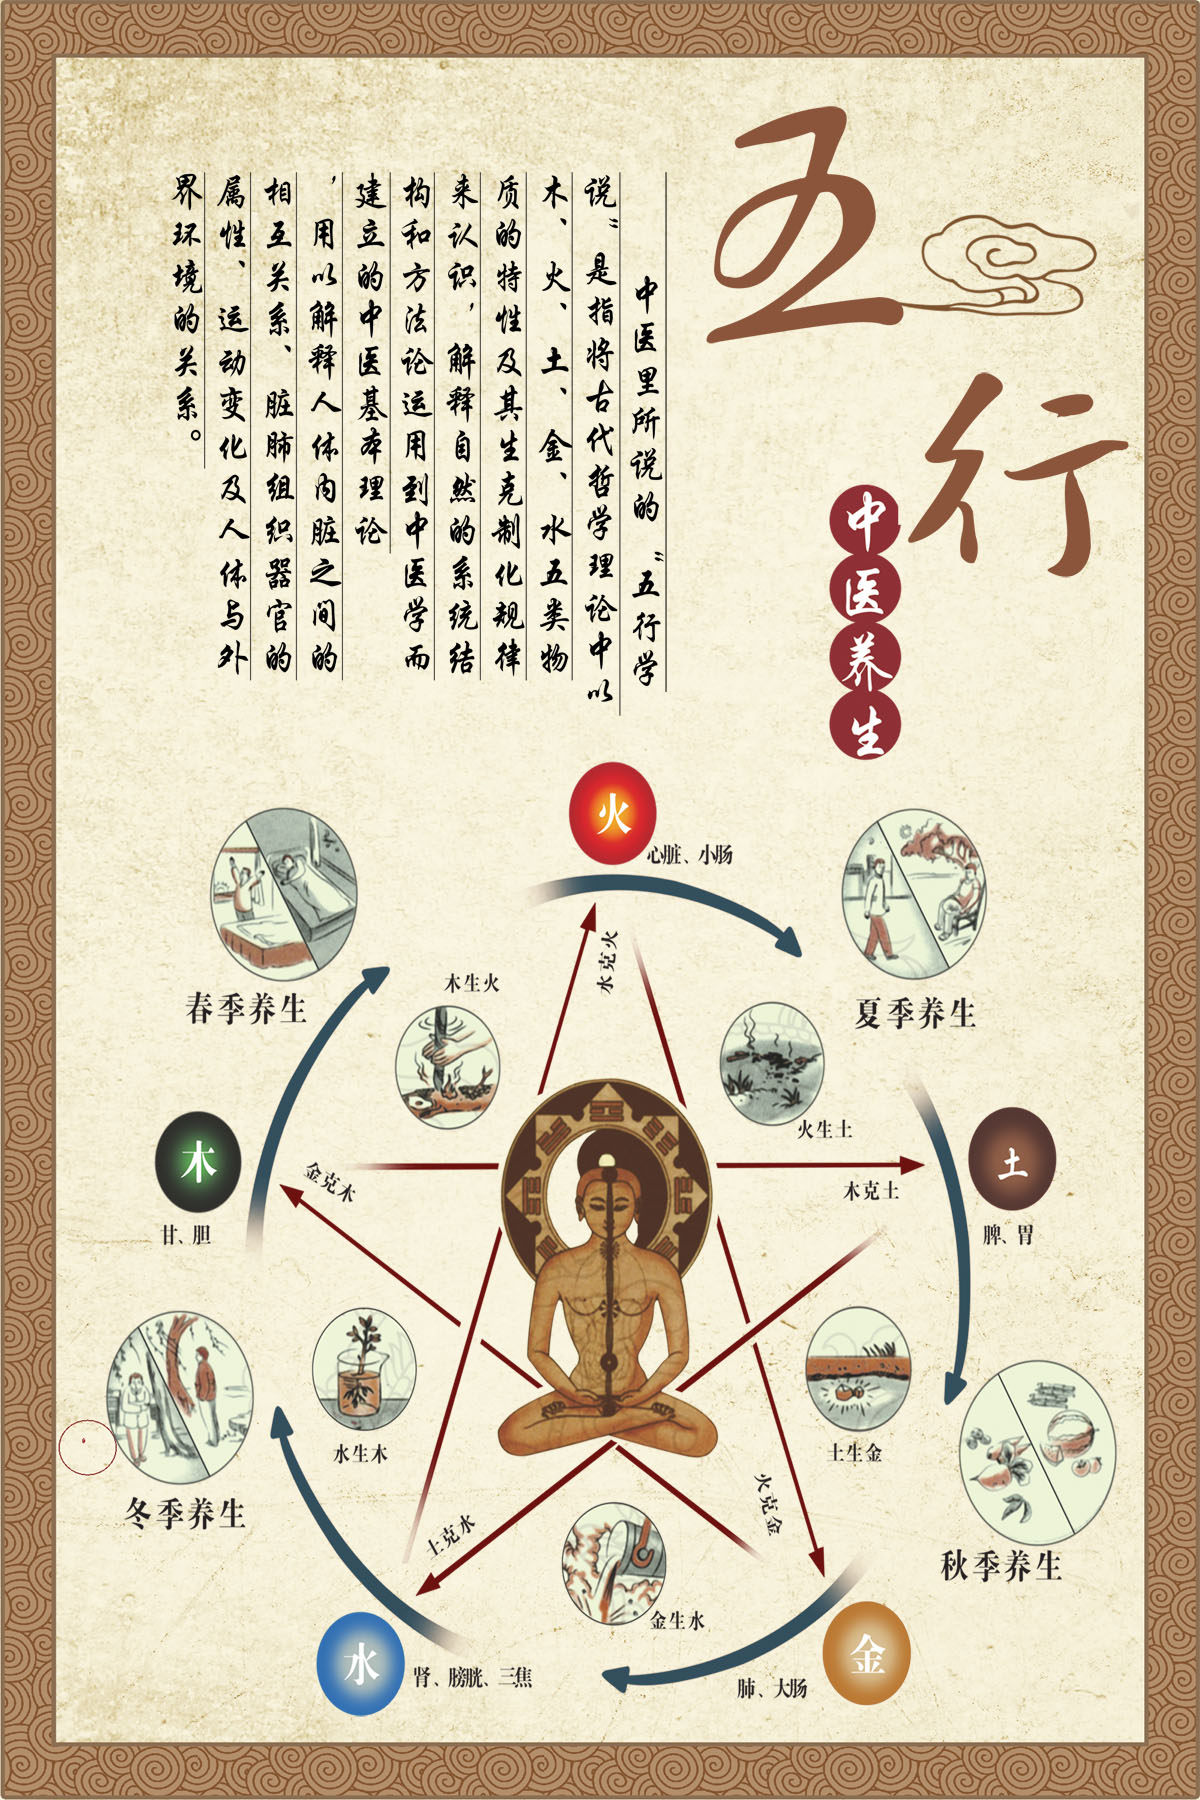 五行
中医养生
中医里所说的“五行学
说”是指将古代哲学理论中以
木、火、土、金、水五类物
质的特性及其生克制化规律
来认识，解释自然的系统结
构和方法论运用到中医学而
建立的中医基本理论
，用以解释人体内脏之间的
相互关系、脏肺组织器官的
属性、运动变化及人体与外
界环境的关系。
火
心脏、小肠
春季养生
夏季养生
木生火
水克火
火生土
木
甘、胆
金克木
木克土
土
脾、胃
水生木
土生金
冬季养生
秋季养生
土克水
火克金
金生水
水
肾、膀胱、三焦
金
肺、大肠